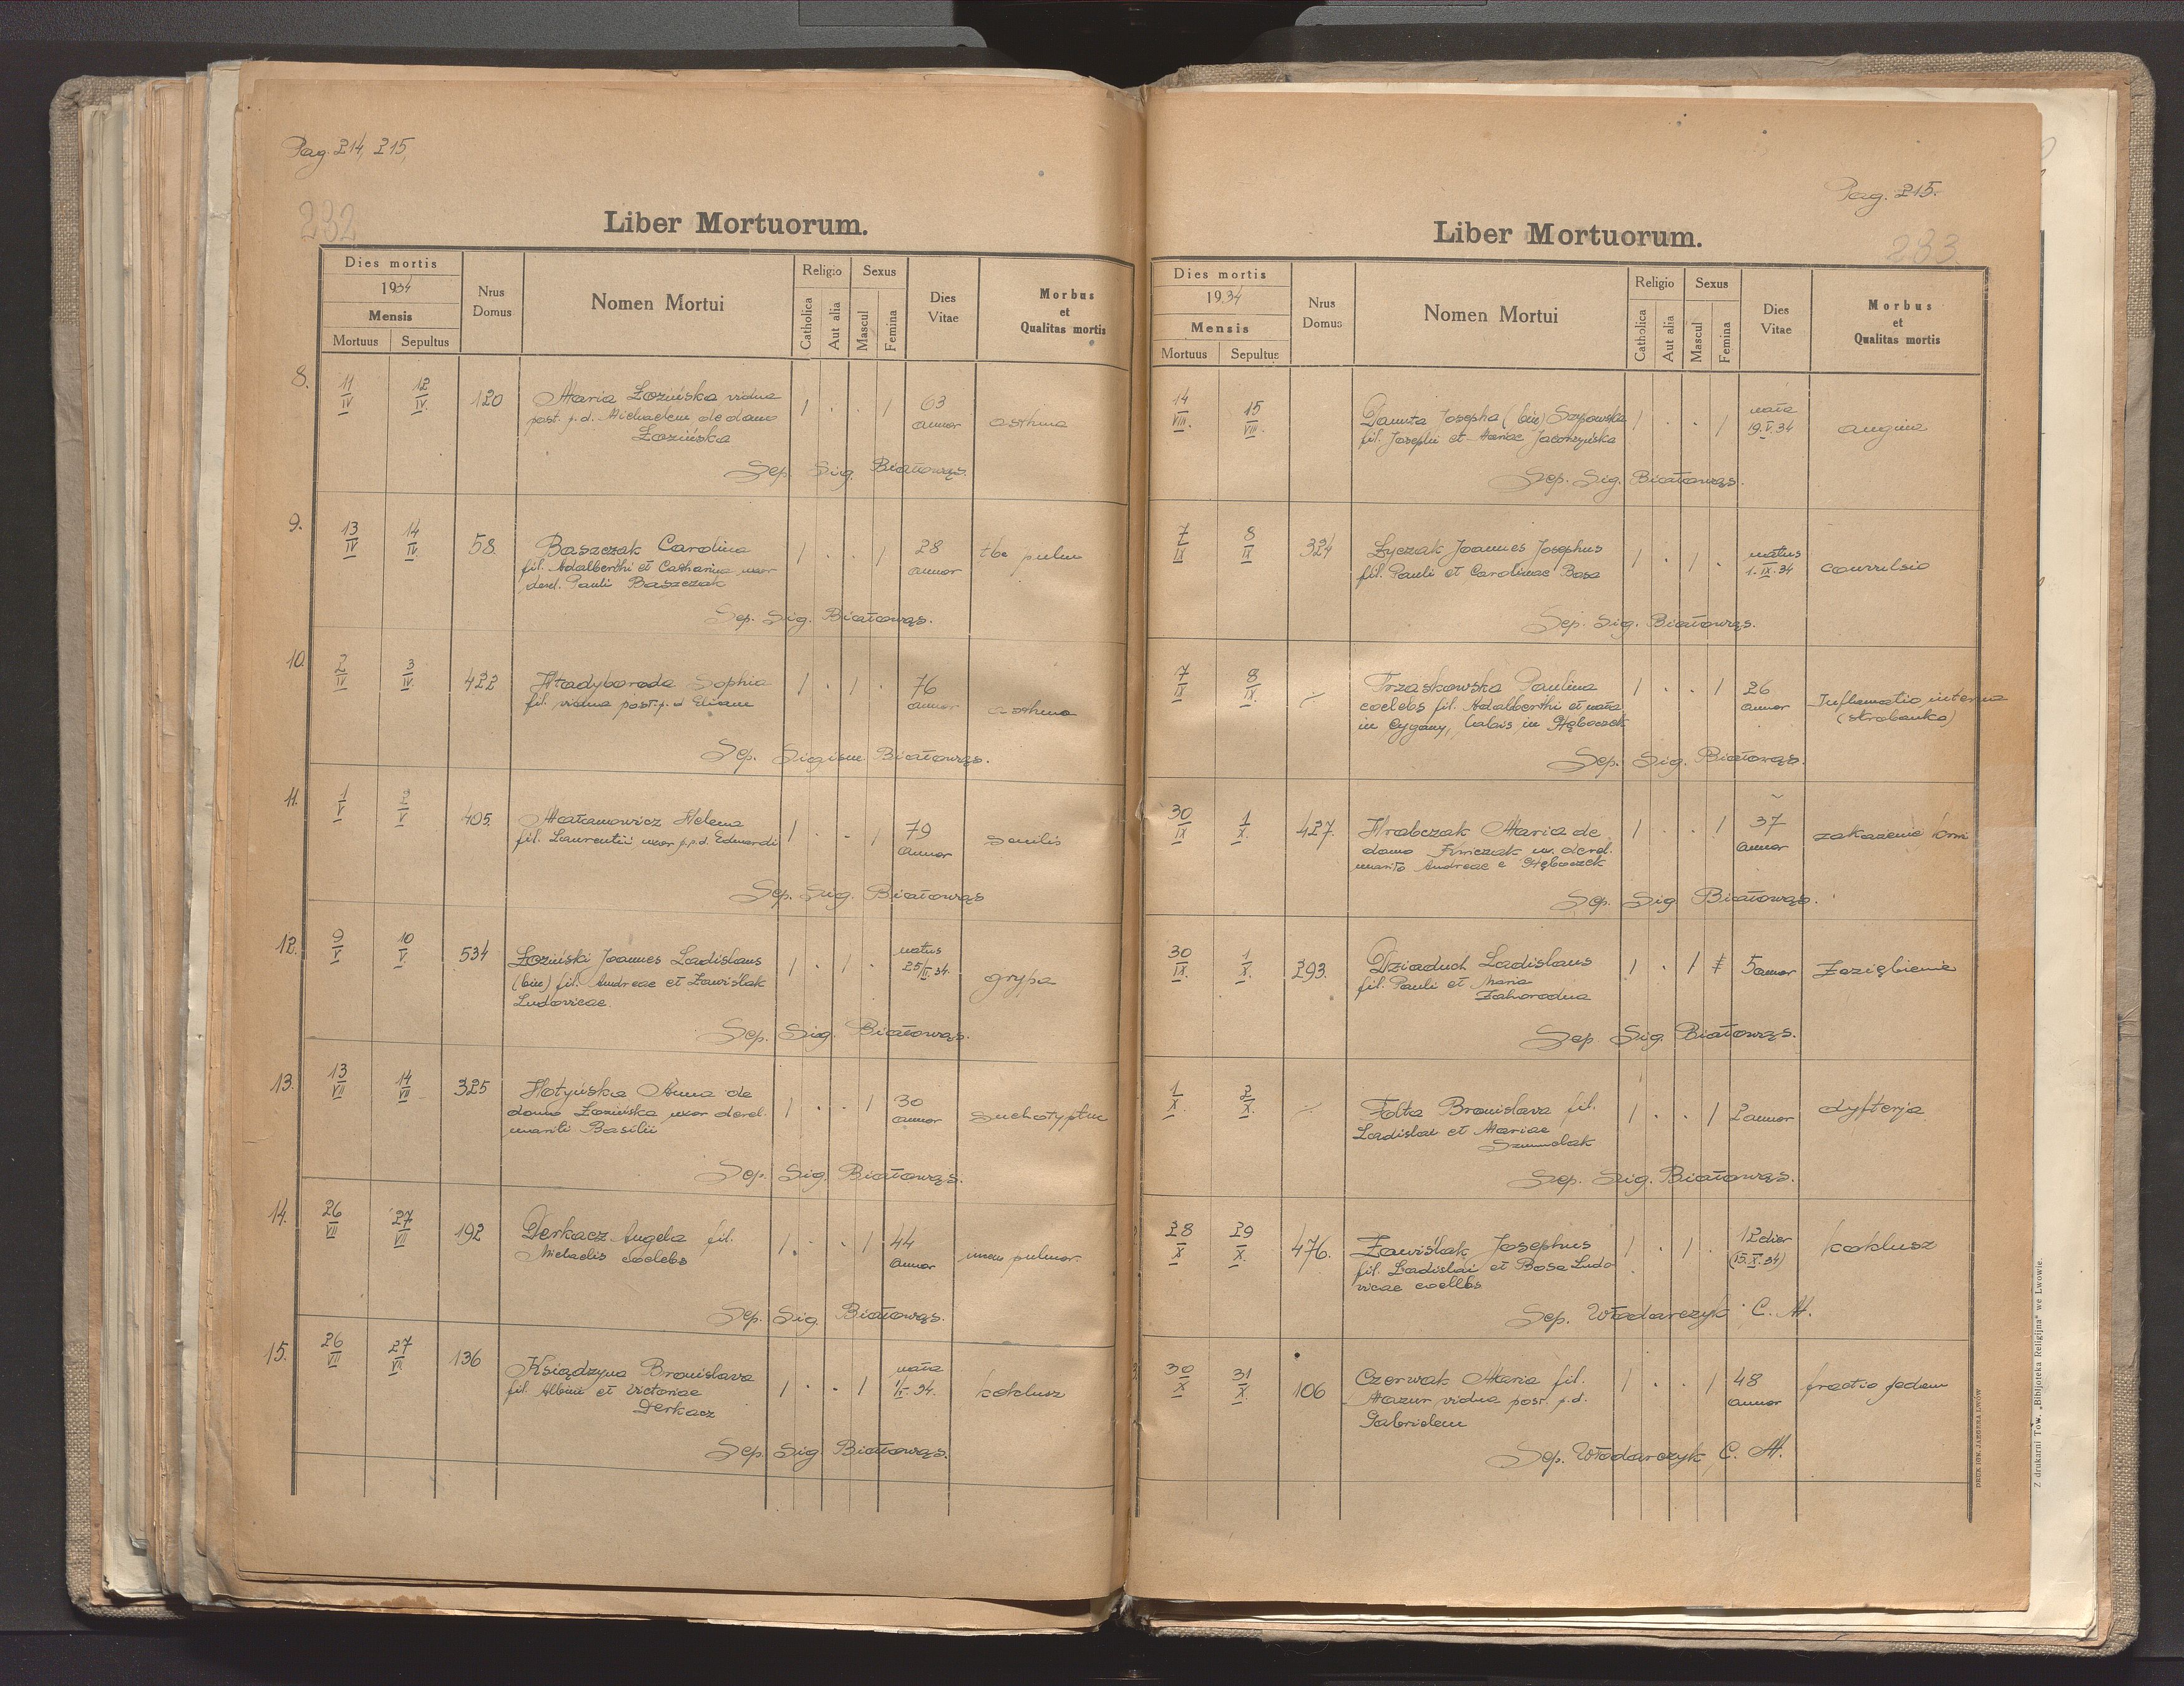 Pag. 214, 215,
232
Liber Mortuorum.
Dies mortis
1934
Mensis
Mortuus Sepultus
Nrus
Domus
Nomen Mortui
Religio
Catholica
Aut alia
Sexus
Mascul
Femina
Dies
Vitae
Morbus
et
Qualitas mortis
8. 11/IV 12/IV. 120 Maria Łozińska vidua 1 . . 1 63
post. p. d. Michaelem de domo annor asthma
Łozińska
Sep. Sig. Białowąs.
9. 13/IV 14/IV. 58. Baszczak Carolina 1 . . 1 28 tbc pulm
fil. Adalberthi et Catharina uxor annor
derel. Pauli Baszczak
Sep. Sig. Białowąs.
10. 2/IV 3/IV. 422 Hładyboroda Sophia 1 . 1 . 76
fil. vidua post. p. d Eliam annor asthma
Sep. Sigism Białowąs.
11. 1/V 2/V 405. Małamowicz Helena 1 . . 1 79
fil. Laurentii uxor p.p.d. Edwardi annor senilis
Sep. Sig. Białowąs
12. 9/V 10/V. 534 Łoziński Joannes Ladislaus 1 . 1 . natus
(bin) fil. Andreae et Zawiślak 25/II.34. grypa
Ludovicae.
Sep. Sig. Białowąs.
13. 13/VII 14/VII 325 Hotyńska Anna de 1 . . 1 30
domo Łozińska uxor derel. annor
mariti Basilii
Sep. Sig. Białowąs.
14. 26/VII 27/VII 192 Derkacz Angela fil. 1 . . 1 44
Michaelis coelebs annor pulmor.
Sep. Sig. Białowąs.
15. 26/VII 27/VII 136 Książdzyna Bronislava 1 . . 1 nata
fil. Albini et Victoriae 34. koklusz
Derkacz
Sep. Sig Białowąs.
Pag. 215.
233.
Liber Mortuorum.
Dies mortis
1934
Mensis
Mortuus Sepultus
Nrus
Domus
Nomen Mortui
Religio
Catholica
Aut alia
Sexus
Mascul
Femina
Dies
Vitae
Morbus
et
Qualitas mortis
14/VIII. 15/VIII. Danuta Josepha (bin) 1 . . 1 nata
fil. Josephi et Mariae Jaworzyńska 19.V.34 angina
Sep. Sig. Białowąs.
7/IX 8/IX 324 Łyczak Joannes Josephus 1 . 1 . natus
fil. Pauli et Carolinae Basa 1.IX.34 convulsio
Sep. Sig. Białowąs.
7/IX 8/IX. Trzaskowska Paulina 1 . . 1 26 Inflamatio interna
coelebs fil. Adalberthi et nata annor
in Cygany, in Głęboczek
Sep. Sig. Białowąs.
30/IX 1/X. 427. Hrabczak Maria de 1 . . 1 37 zakażenie krwi
domo ux. derel. annor
marito Andreae e Głęboczek
Sep. Sig Białowąs.
30/IX. 1/X. 293. Dziaduch Ladislaus 1 . 1 5 annor Zaziębienie
fil. Pauli et Maria
Zahorodna
Sep Sig. Białowąs.
1/X. 2/X. Folta Bronislava fil. 1 . . 1 2 annor dyfterja
Ladislai et Mariae
Szumelak
Sep. Sig. Białowąs.
28/X 29/X. 476. Zawiślak Josephus 1 . 1 . 12 dier koklusz
fil. Ladislai et Basa Ludo (15.X.34)
vicae coelebs
Sep. Włodarczyk C. M.
30/X 31/X. 106 Czerwak Maria fil. 1 . . 1 48 fractio pedum
Mazur vidua post. p.d. annor
Gabrielem
Sep. Włodarczyk C. M.
DRUK IGN. JAEGERA LWÓW
Z drukarni Tow. „Bibljoteka Religijna" we Lwowie.